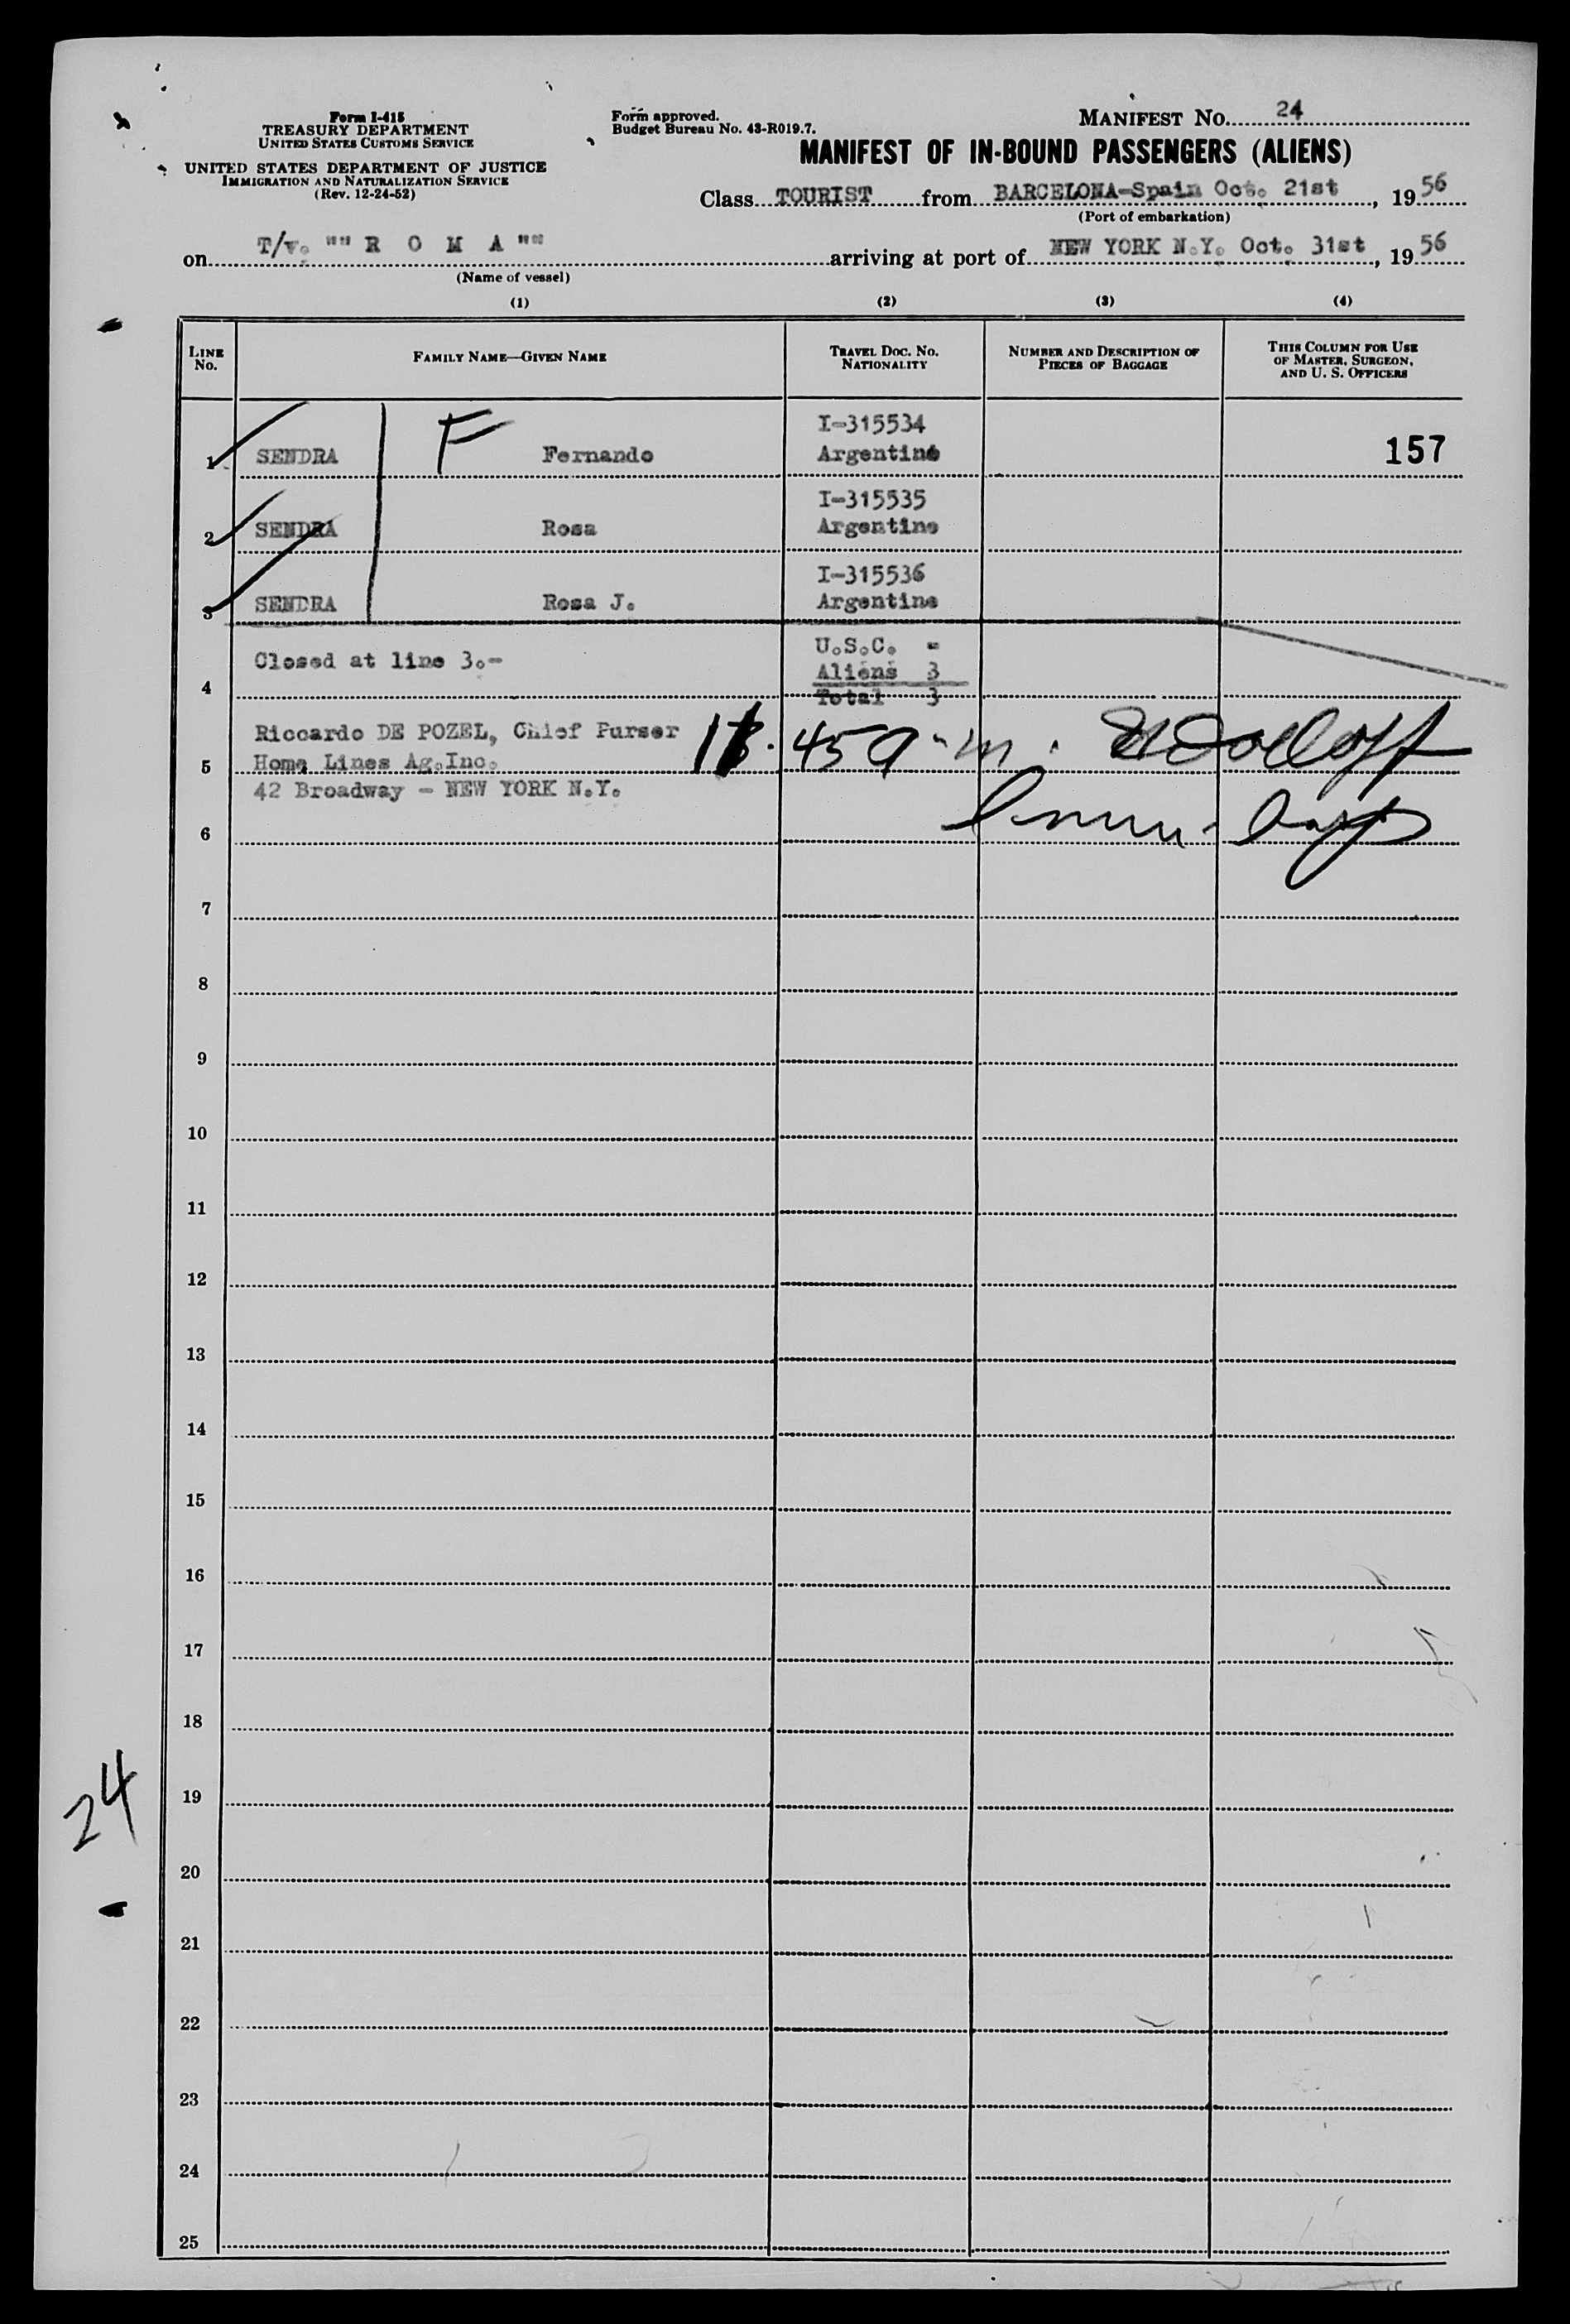 Form I-415
TREASURY DEPARTMENT
UNITED STATES CUSTOMS SERVICE
UNITED STATES DEPARTMENT OF JUSTICE
IMMIGRATION AND NATURALIZATION SERVICE
(Rev. 12-24-52)
Form approved.
Budget Bureau No. 43-R019.7.
MANIFEST NO. 24
MANIFEST OF IN-BOUND PASSENGERS (ALIENS)
Class TOURIST from BARCELONA-Spain Oct. 21st, 1956
(Port of embarkation)
on T/v. "" R O M A "" arriving at port of NEW YORK N.Y. Oct. 31st, 1956
(Name of vessel)
(1) (2) (3) (4)
LINE NO. FAMILY NAME—GIVEN NAME TRAVEL DOC. NO. NATIONALITY NUMBER AND DESCRIPTION OF PIECES OF BAGGAGE THIS COLUMN FOR USE OF MASTER, SURGEON, AND U. S. OFFICERS
I-315534
1 SENDRA F Fernando Argentine 157
I-315535
2 SENDRA Rosa Argentine
I-315536
3 SENDRA Rosa J. Argentine
U.S.C. -
Closed at line 3.- Aliens 3
4 Total 3
Riccardo DE POZEL, Chief Purser 45 a.m.
5 Home Lines Ag.Inc.
42 Broadway - NEW YORK N.Y.
6
7
8
9
10
11
12
13
14
15
16
17
18
24
19
20
21
22
23
24
25